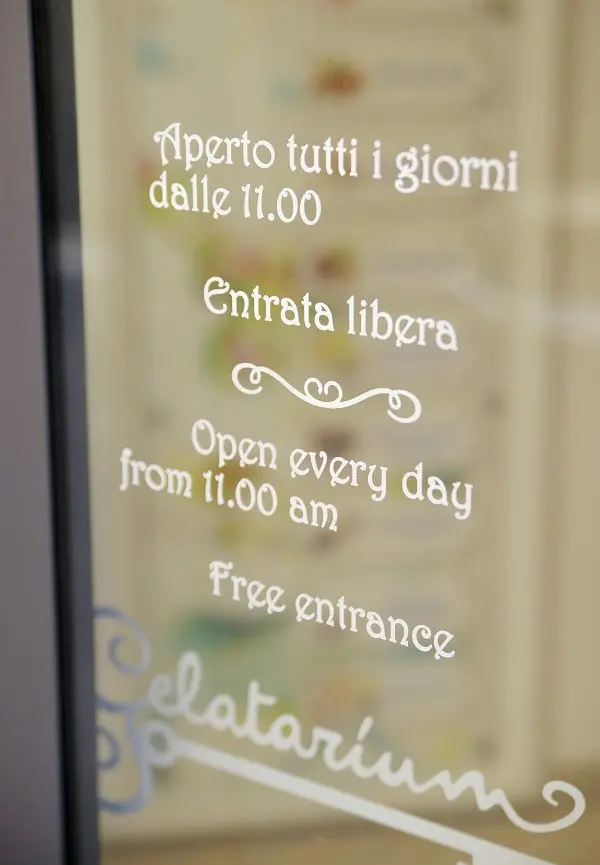 Aperto tutti i giorni
dalle 11.00
Entrata libera
Open every day
from 11.00 am
Free entrance
elatarium